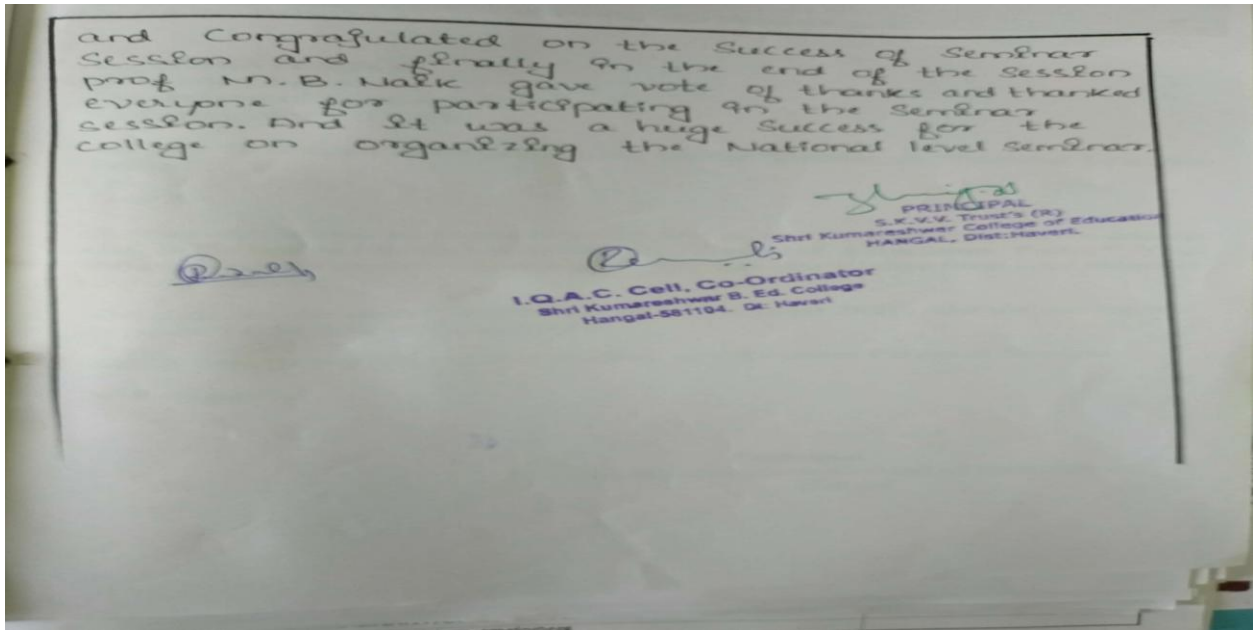 and Congragulated on the Success of Seminar
Session and finally in the end of the Session
prof M. B. Naik gave vote of thanks and thanked
everyone for participating in the Seminar
session. And it was a huge Success for the
college on organizing the National level Seminar.
PRINCIPAL
S.K.V.V. Trust's (R)
Shri Kumareshwar College of Education
HANGAL, Dist:Haveri.
I.Q.A.C. Cell, Co-Ordinator
Shri Kumareshwar B. Ed. College
Hangal-581104. Dt: Haveri